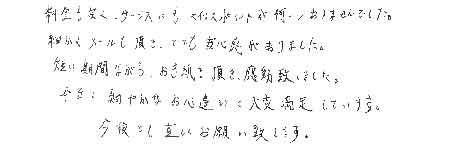 料金も安く、サービスにもマイナスポイントが何一つありませんでした。
細かくメールも頂き、とても安心感がありました。
短い期間ながら、お手紙も頂き、感動致しました。
細やかなお心遣いに大変満足しています。
今後とも宜しくお願い致します。